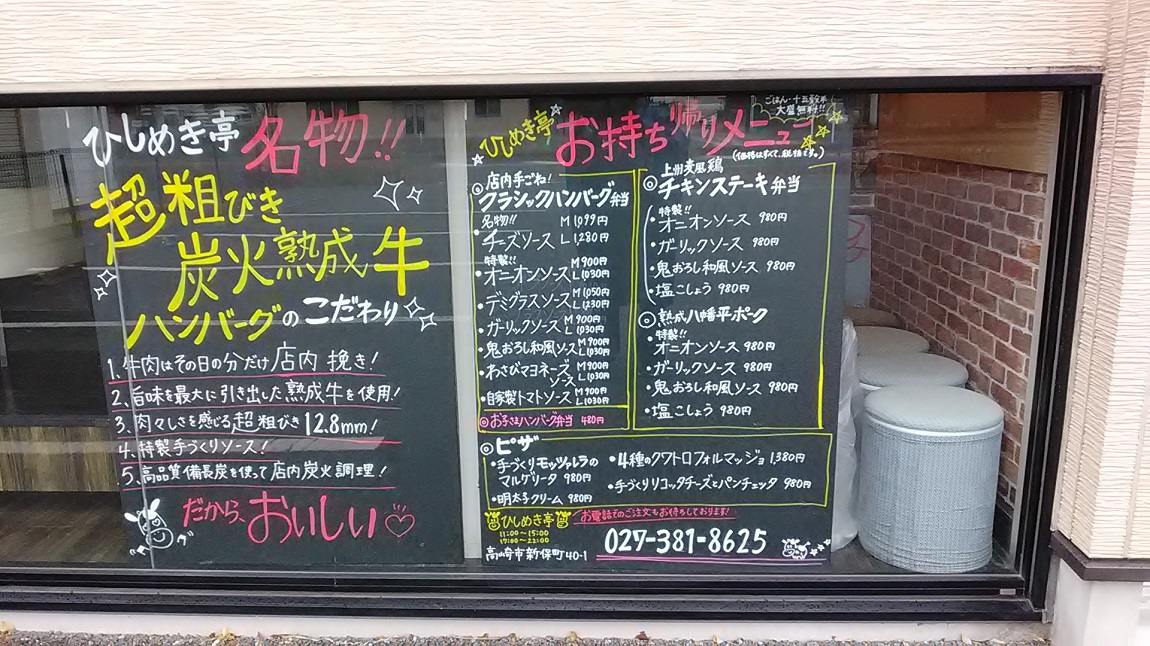 ひしめき亭 名物!!
超粗びき
炭火熟成牛
ハンバーグのこだわり
1.牛肉はその日の分だけ店内挽き!
2.旨味を最大に引き出した熟成牛を使用!
3.肉々しさを感じる超粗びき12.8mm!
4.特製手づくりソース!
5.高品質備長炭を使って店内炭火調理!
だから、おいしい♡
ごはん・十五穀米
大盛無料!!
ひしめき亭 お持ち帰りメニュー
(価格はすべて、税抜です。)
◎店内手ごね!
クラシックハンバーグ弁当
名物!!
・チーズソース M 1,099円 L 1,280円
特製!!
・オニオンソース M 900円 L 1,030円
・デミグラスソース M 1,050円 L 1,230円
・ガーリックソース M 900円 L 1,030円
・鬼おろし和風ソース M 900円 L 1,030円
・わさびマヨネーズソース M 900円 L 1,030円
・自家製トマトソース M 900円 L 1,030円
◎お子さまハンバーグ弁当 480円
上州麦風鶏
◎チキンステーキ弁当
特製!!
・オニオンソース 980円
・ガーリックソース 980円
・鬼おろし和風ソース 980円
・塩こしょう 980円
◎熟成八幡平ポーク
特製!!
・オニオンソース 980円
・ガーリックソース 980円
・鬼おろし和風ソース 980円
・塩こしょう 980円
◎ピザ
・手づくりモッツァレラの
マルゲリータ 980円
・明太子クリーム 980円
・4種のクワトロフォルマッジョ 1,380円
・手づくりリコッタチーズとパンチェッタ 980円
ひしめき亭
11:00～15:00
17:00～22:00
高崎市新保町40-1
お電話でのご注文もお待ちしております!
027-381-8625